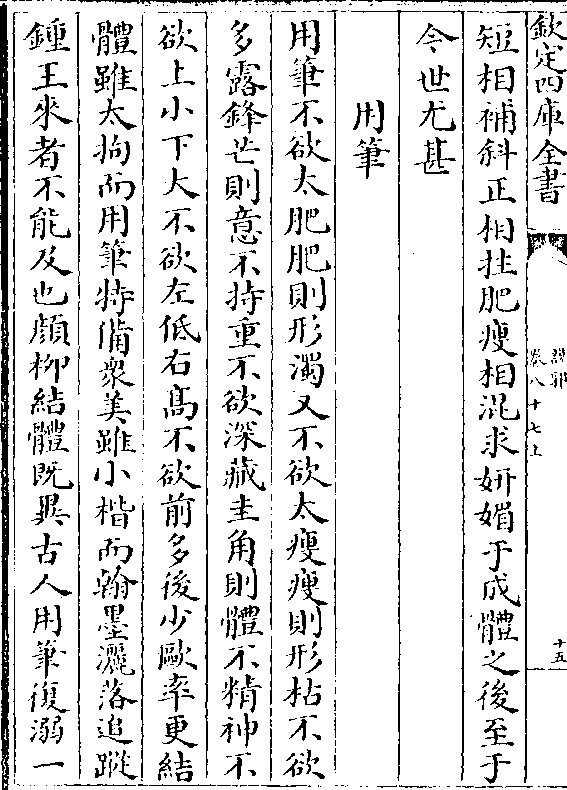 欽定四庫全書
說郛
卷八十七上
十五
短相補斜正相拄肥瘦相混求妍媚于成體之後至于
今世尤甚
用筆
用筆不欲太肥肥則形濁又不欲太瘦瘦則形枯不欲
多露鋒芒則意不持重不欲深藏圭角則體不精神不
欲上小下大不欲左低右髙不欲前多後少歐率更結
體雖太拘而用筆特備衆美雖小楷而翰墨灑落追蹤
鍾王來者不能及也顔柳結體既異古人用筆復溺一